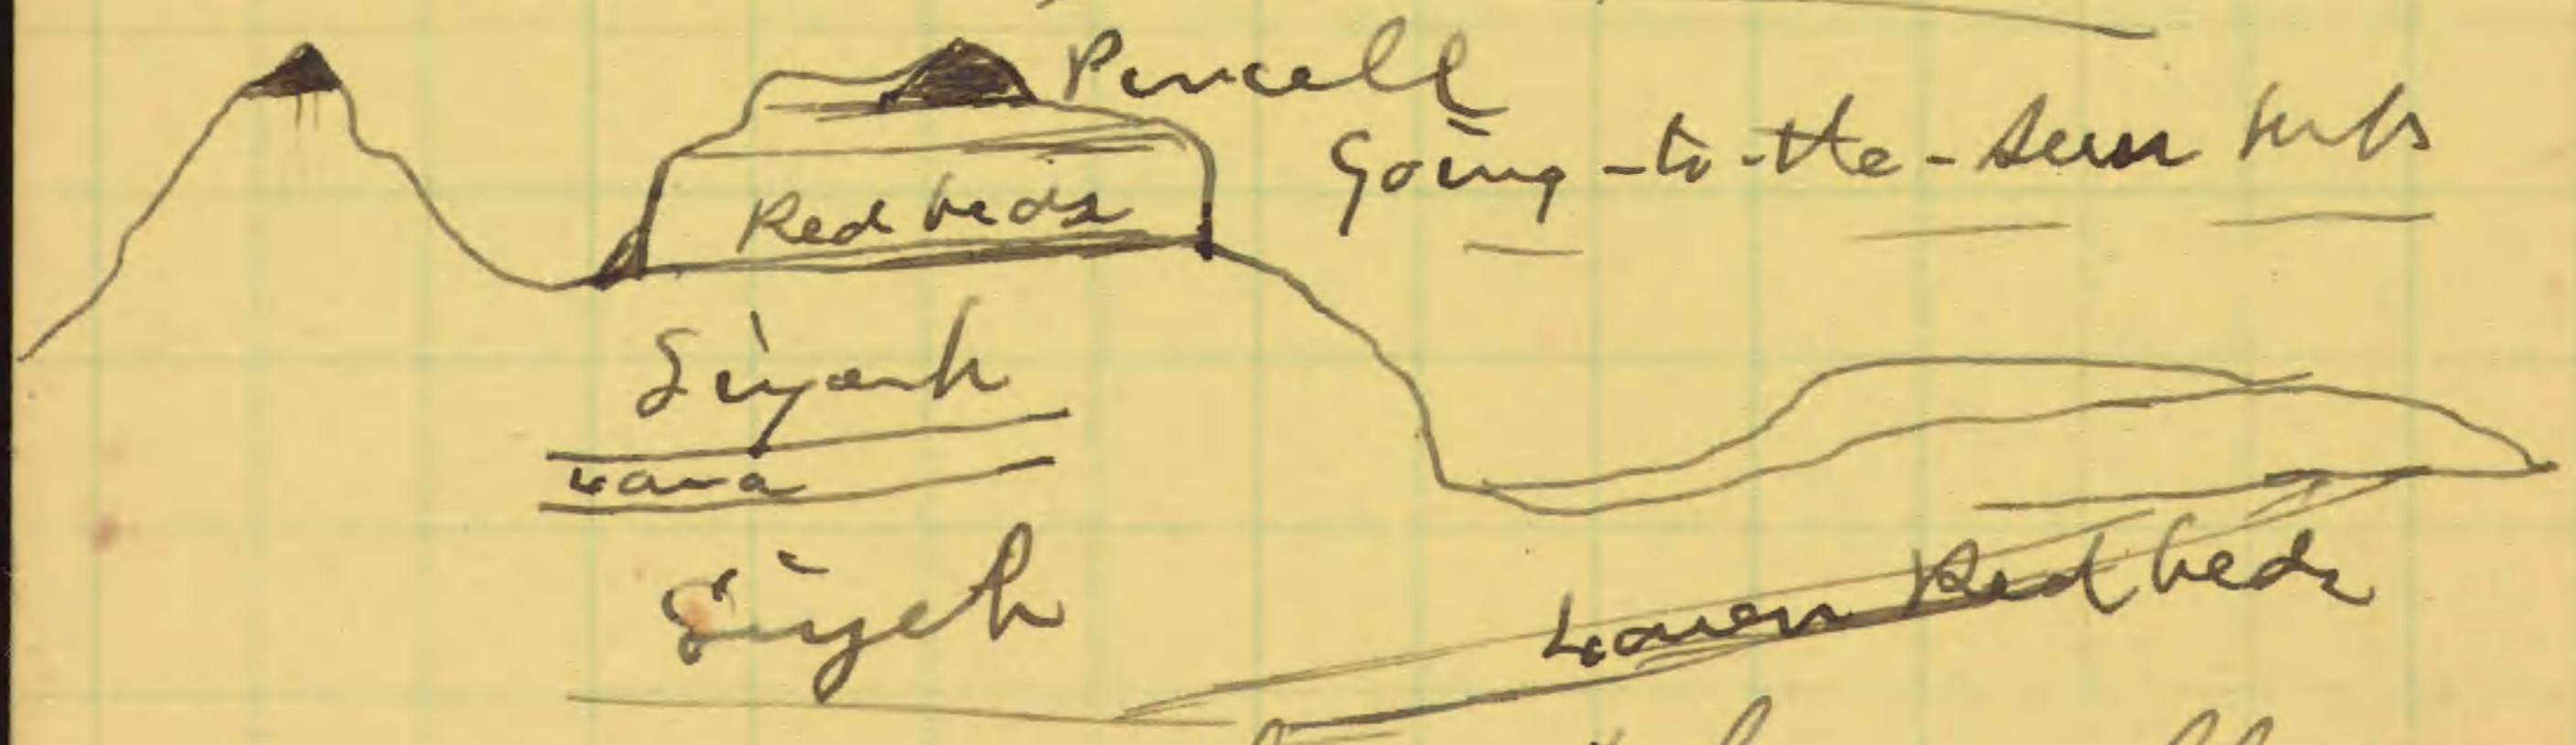 Purcell
Going-to-the-Sun
Red beds
Siyeh
Lava
Siyeh
Lower Red beds